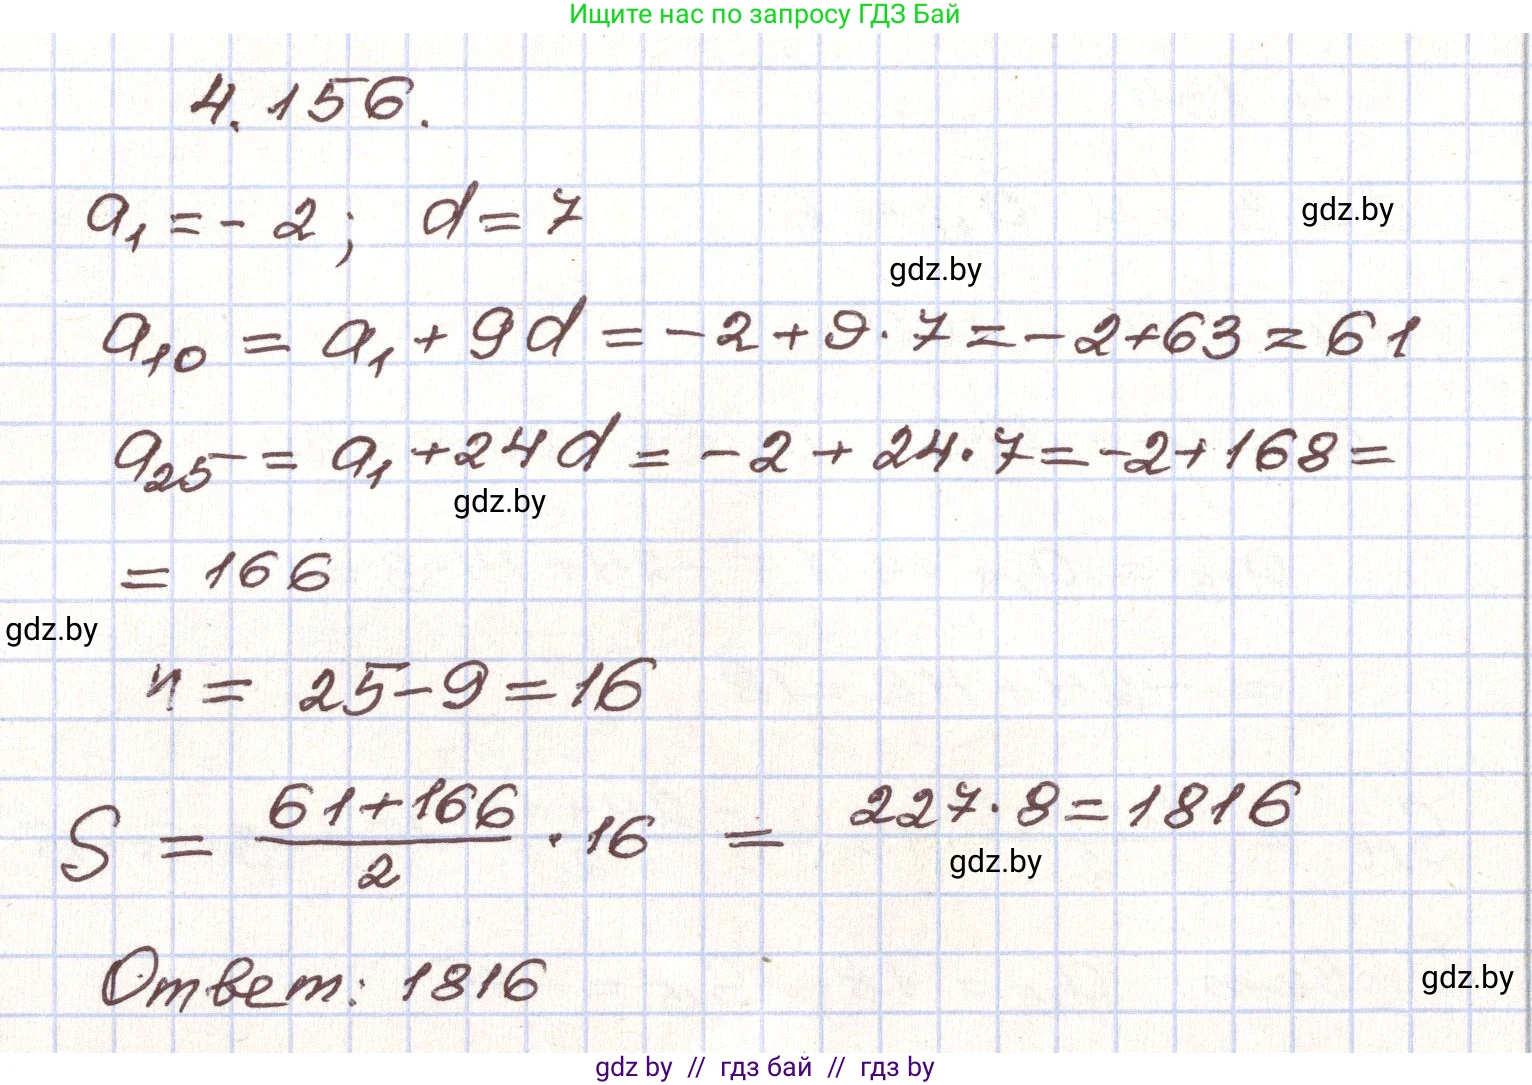 Ищите нас по запросу ГДЗ Бай
4.156.
a₁ = - 2 ; d = 7
gdz.by
gdz.by
a₁₀ = a₁ + 9d = -2 + 9·7 = -2+63 = 61
a₂₅ = a₁ + 24d = -2 + 24·7 = -2+168 =
gdz.by
= 166
gdz.by
n = 25-9 = 16
S = (61+166)/2 · 16 = 227·8 = 1816
gdz.by
Ответ: 1816
gdz.by
gdz by // гдз бай // гдз by